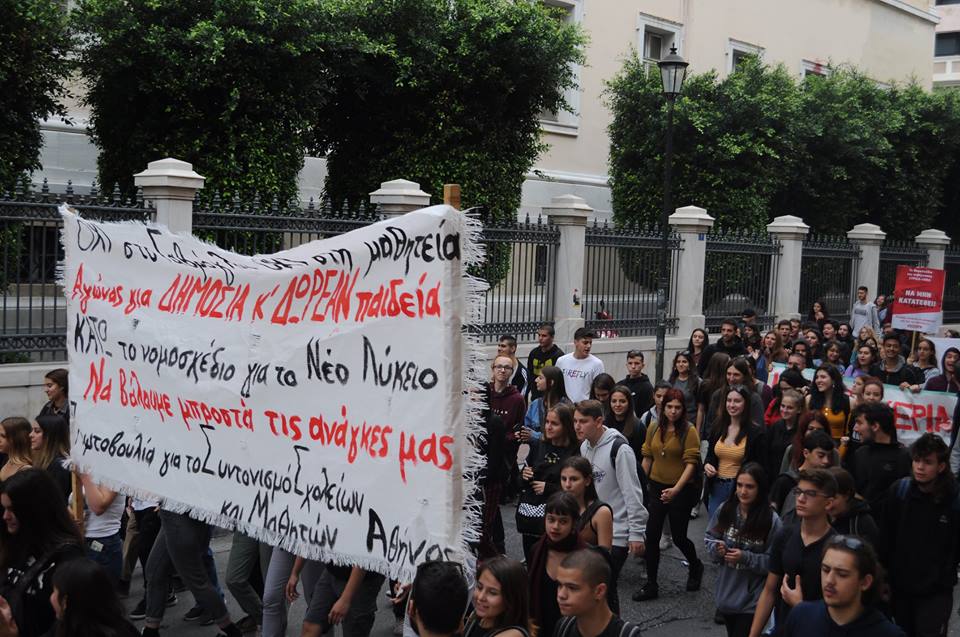 ΌΧΙ στη μαθητεία
Αγώνας για ΔΗΜΟΣΙΑ κ' ΔΩΡΕΑΝ παιδεία
ΚΑΤΩ το νομοσχέδιο για το Νέο Λύκειο
Να βάλουμε μπροστά τις ανάγκες μας
Πρωτοβουλία για το Συντονισμό Σχολείων
και Μαθητών Αθήνας
ΝΑ ΜΗΝ
ΚΑΤΑΤΕΘΕΙ
FIREFLY